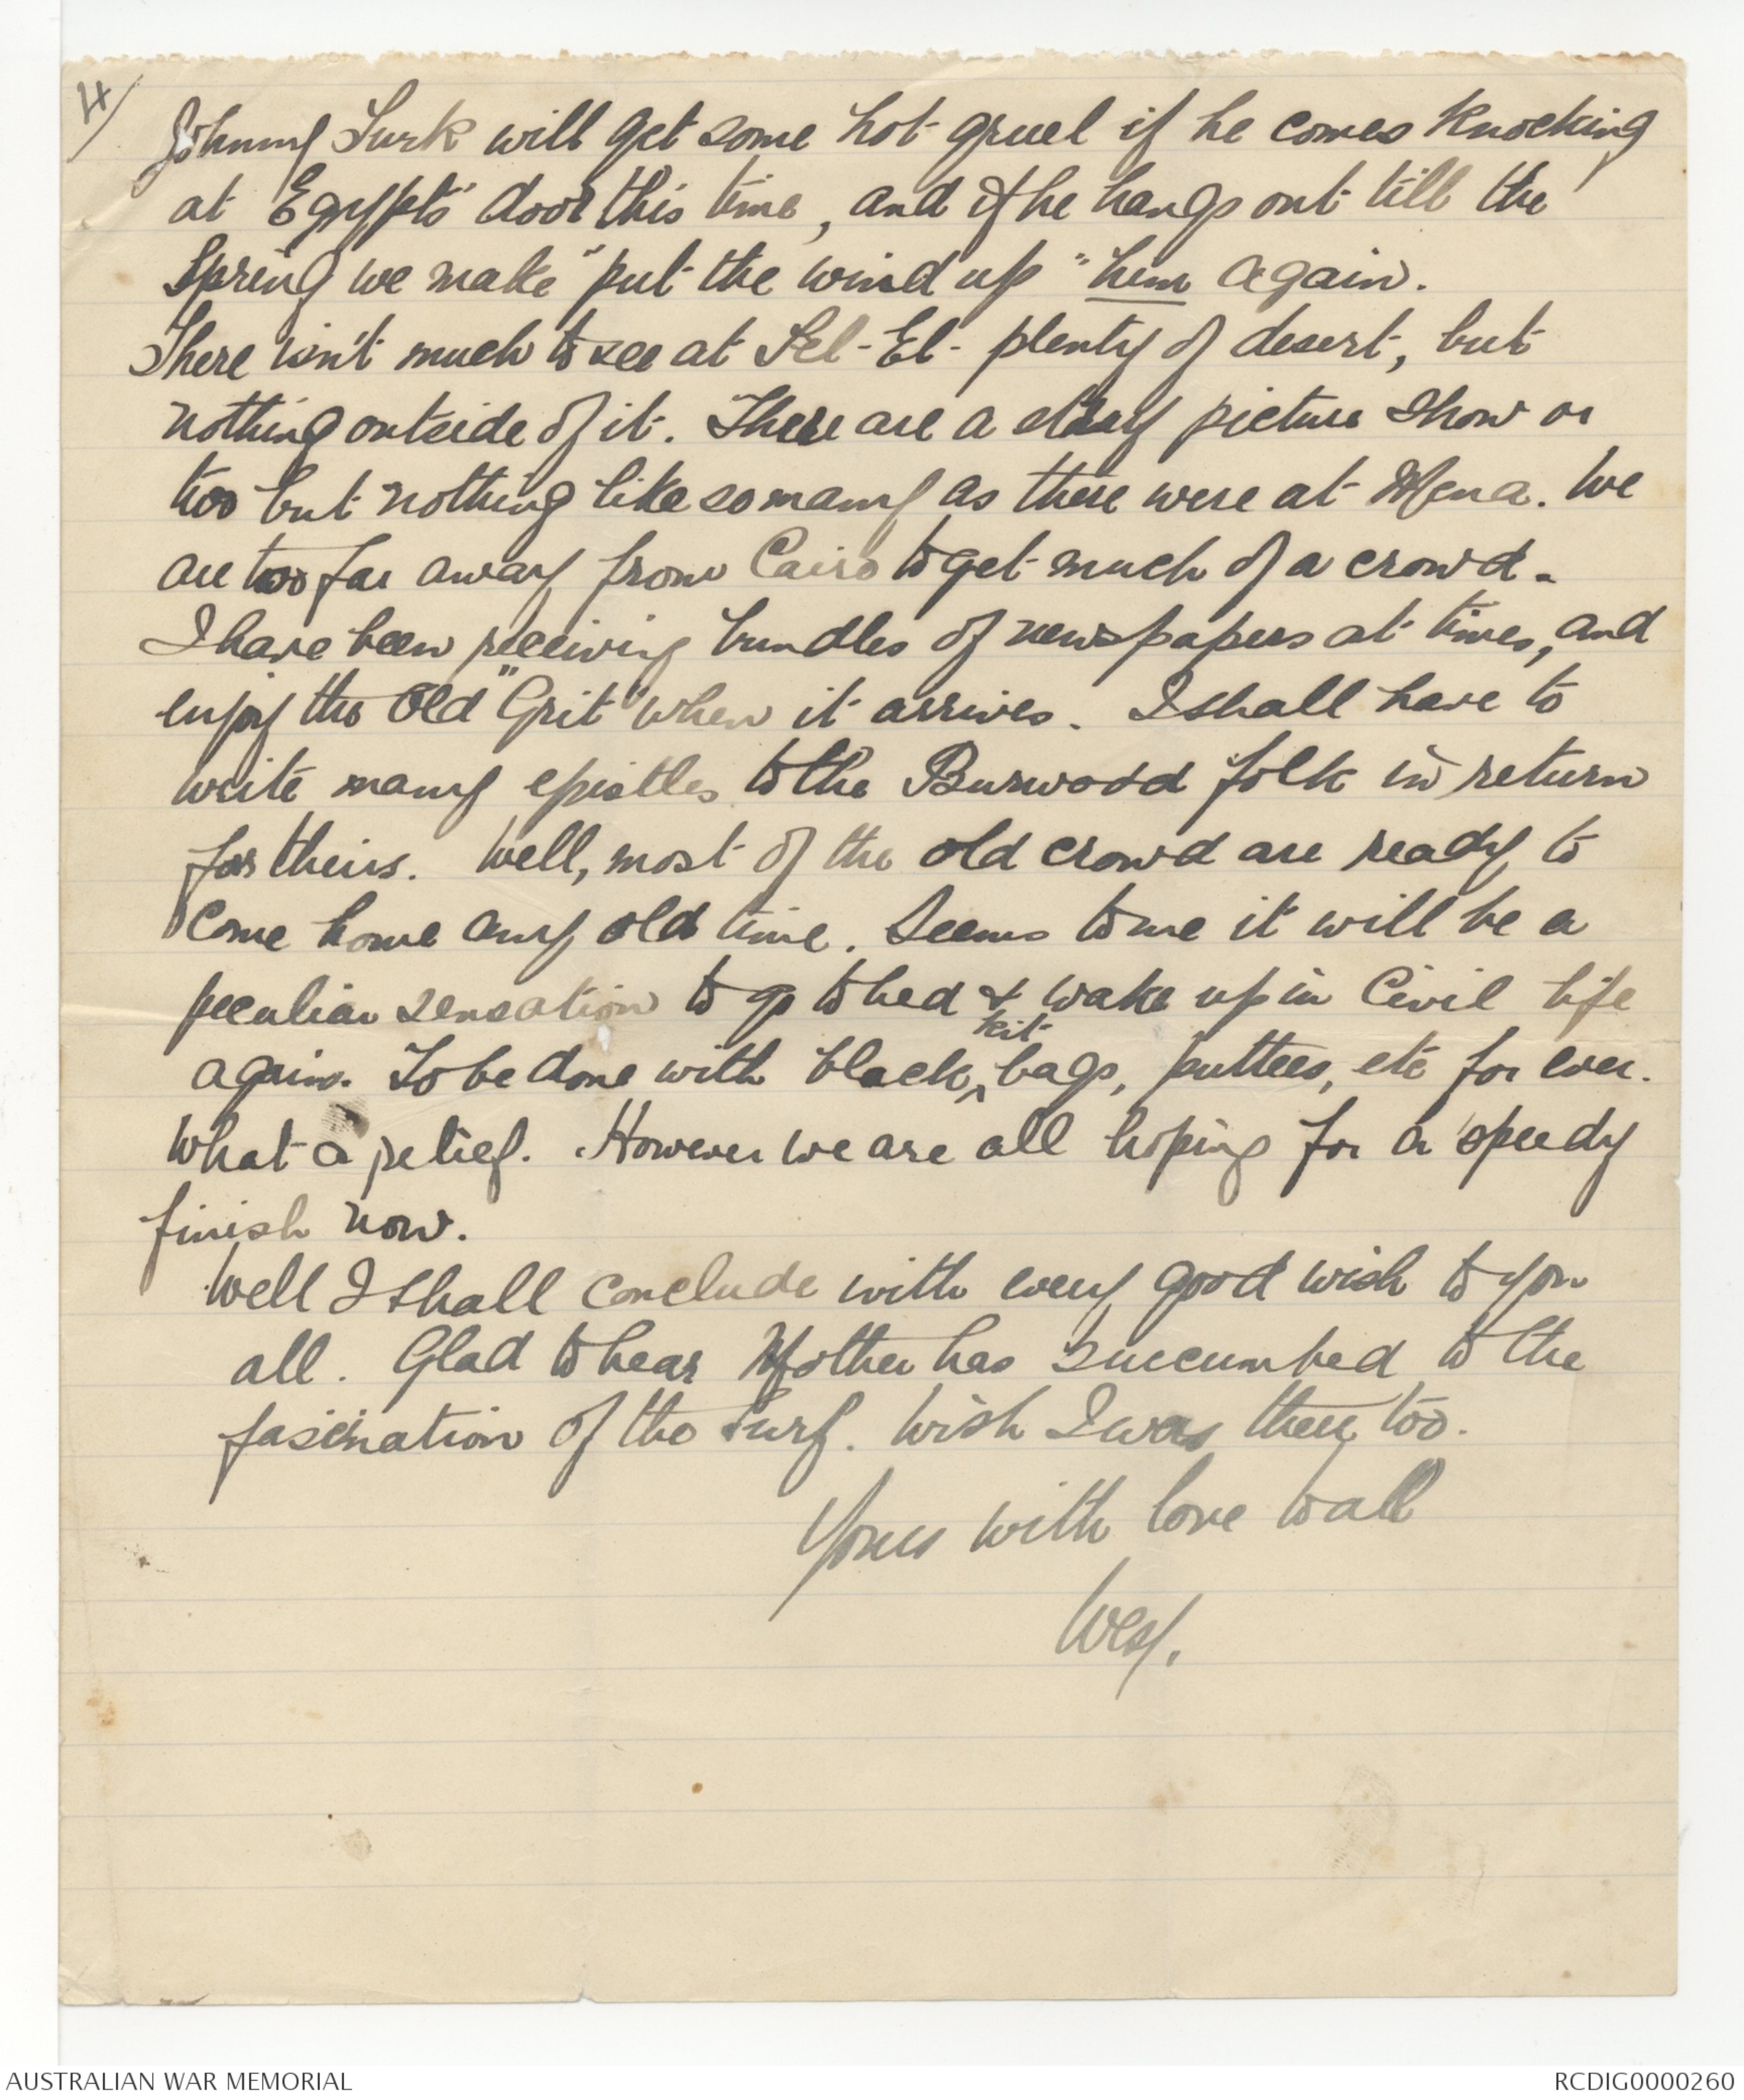 4/
Johnny Turk will get some hot gruel if he comes knocking
at Egypts' door this time, and if he hangs out till the
Spring we make "put the wind up" him again.
There isn't much to see at Tel-El- plenty of desert, but
nothing outside of it. There are a stray picture show or
too but nothing like so many as there were at Mena. We
are too far away from Cairo to get much of a crowd.
I have been receiving bundles of newspapers at times, and
enjoy the Old "Grit" when it arrives. I shall have to
write many epistles to the Burwood folk in return
for theirs. Well, most of the old crowd are ready to
come home any old time. Seems to me it will be a
peculiar sensation to go to bed & wake up in Civil life
again. To be done with black, kit bags, puttees, etc for ever.
What a relief. However we are all hoping for a speedy
finish now.
Well I shall conclude with every good wish to you
all. Glad to hear Mother has succumbed to the
fascination of the surf. Wish I was there too.
Yours with love to all
Wes.
AUSTRALIAN WAR MEMORIAL
RCDIG0000260